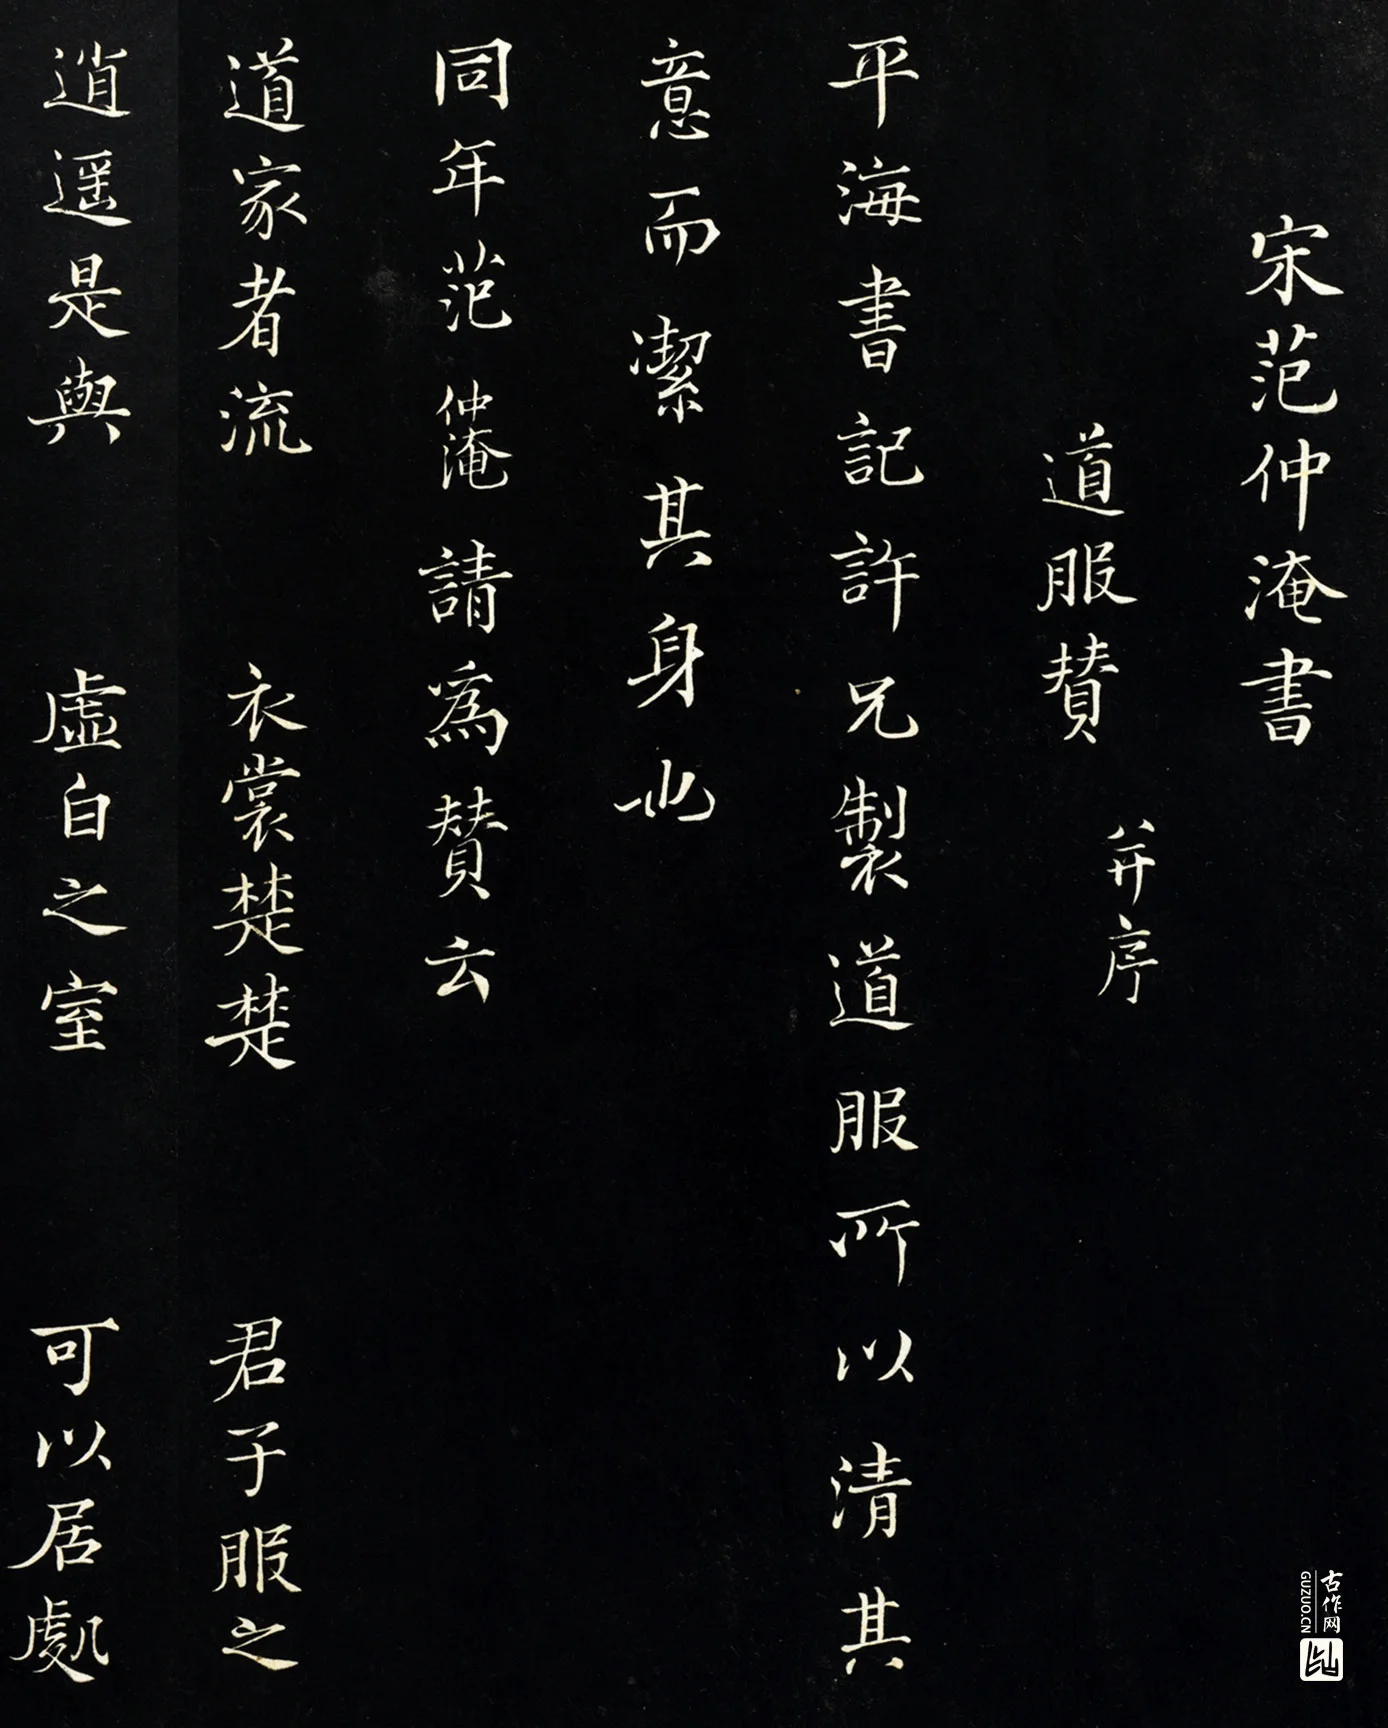 宋范仲淹書
道服赞
并序
平海書記許兄製道服所以清其
意而潔其身也
同年范仲淹請為赞云
道家者流 衣裳楚楚 君子服之
逍遥是與 虛白之室 可以居處
古作网
GUZUO.CN